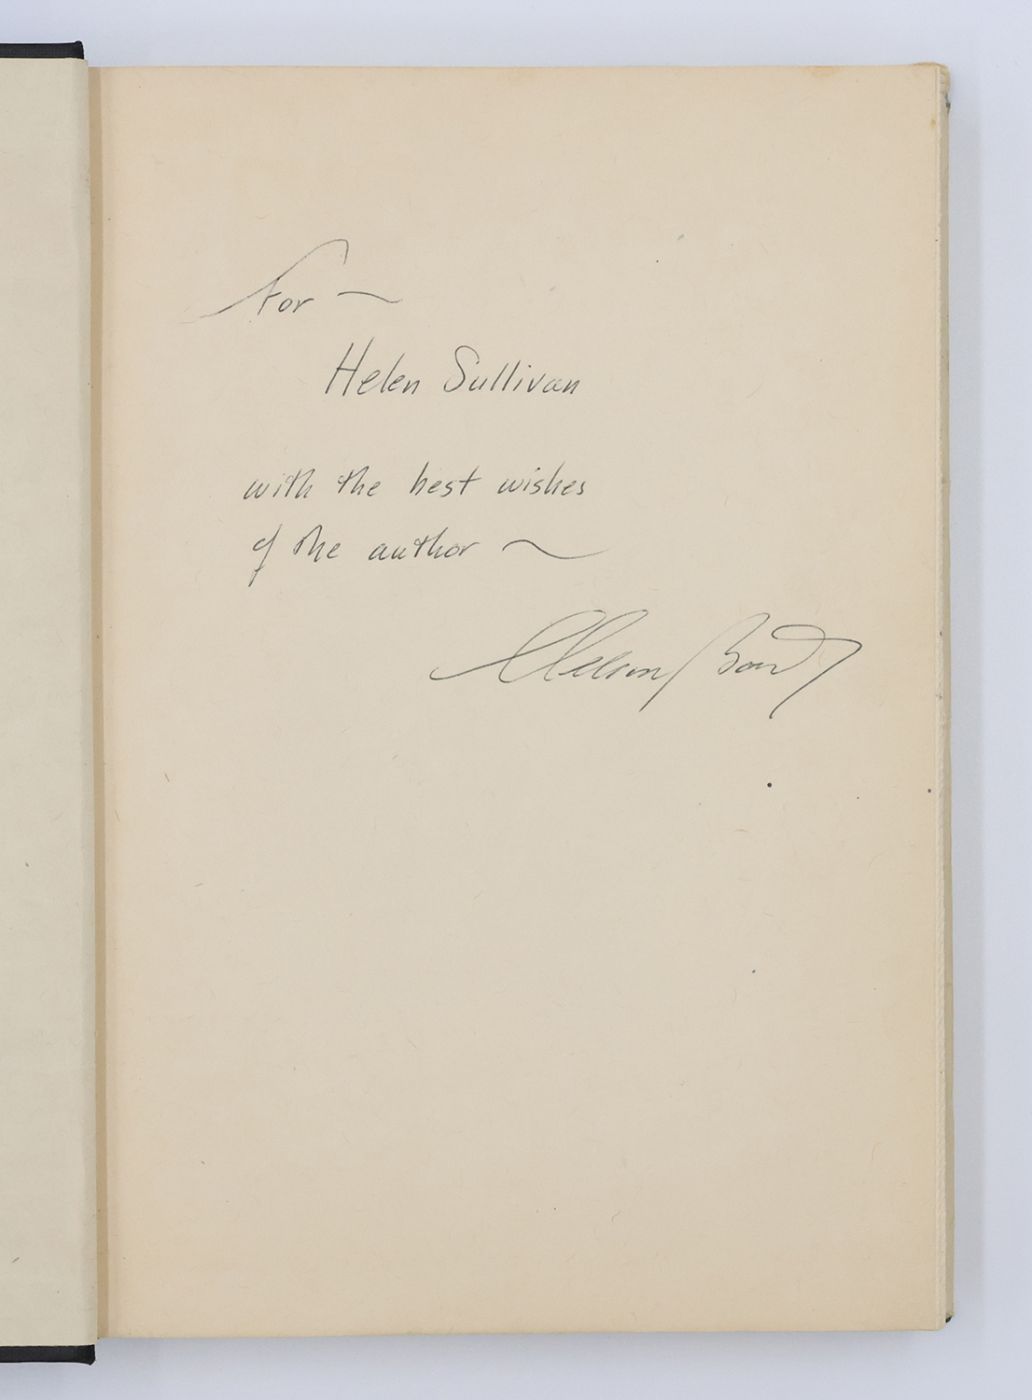 For ~
Helen Sullivan
with the best wishes
of the author ~
Nelson Bond